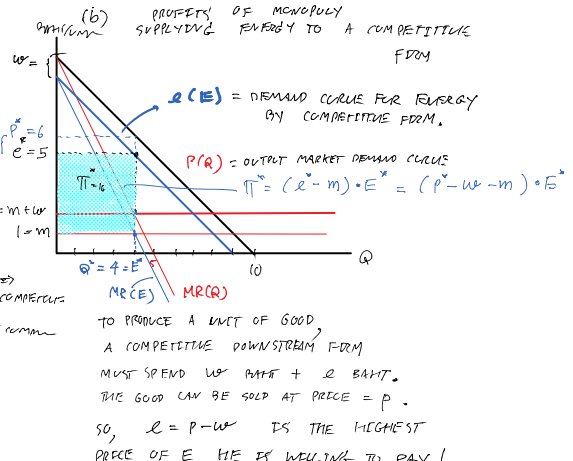 (b) PROFITS OF MONOPOLY
BAHT/UNIT SUPPLYING ENERGY TO A COMPETITIVE
FIRM
w = {
e(E) = DEMAND CURVE FOR ENERGY
BY COMPETITIVE FIRM.
P* = 6
e* = 5
P(Q) = OUTPUT MARKET DEMAND CURVE
π* = 16
π* = (e* - m) · E* = (P* - w - m) · E*
= m + w
1 = m
10
Q
Q* = 4 = E*
MR(E) MR(Q)
TO PRODUCE A UNIT OF GOOD,
A COMPETITIVE DOWNSTREAM FIRM
MUST SPEND w BAHT + e BAHT.
THE GOOD CAN BE SOLD AT PRICE = p.
SO, e = p - w IS THE HIGHEST
PRICE OF E HE IS WILLING TO PAY!